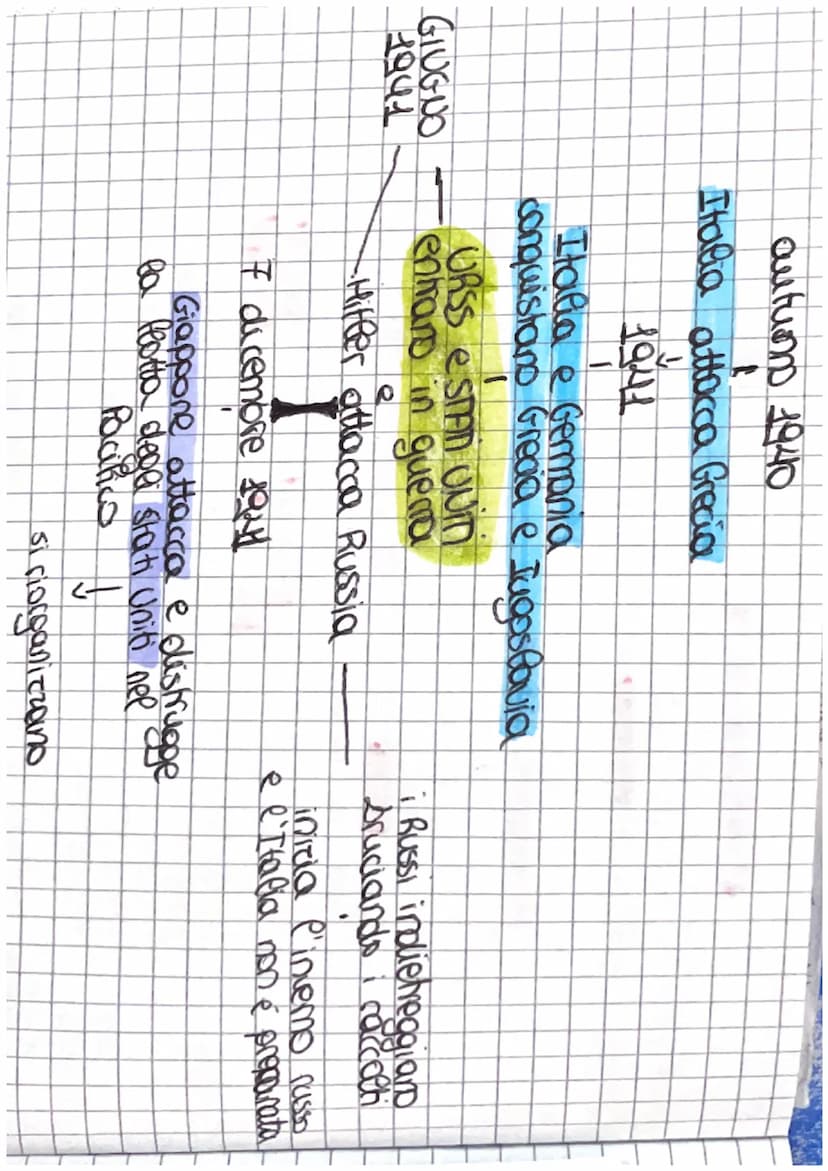 autunno 1940
Italia attacca Grecia
1941
Italia e Germania
conquistano Grecia e Iugoslavia
GIUGNO
1941
URSS e STATI UNITI
entrano in guerra
e
Hitler attacca Russia
i Russi indietreggiano
bruciando i raccolti
inizia l'inverno russo
e l'Italia non è preparata
7 dicembre 1941
Giappone attacca e distrugge
la flotta degli Stati Uniti nel
Pacifico
si riorganizzano